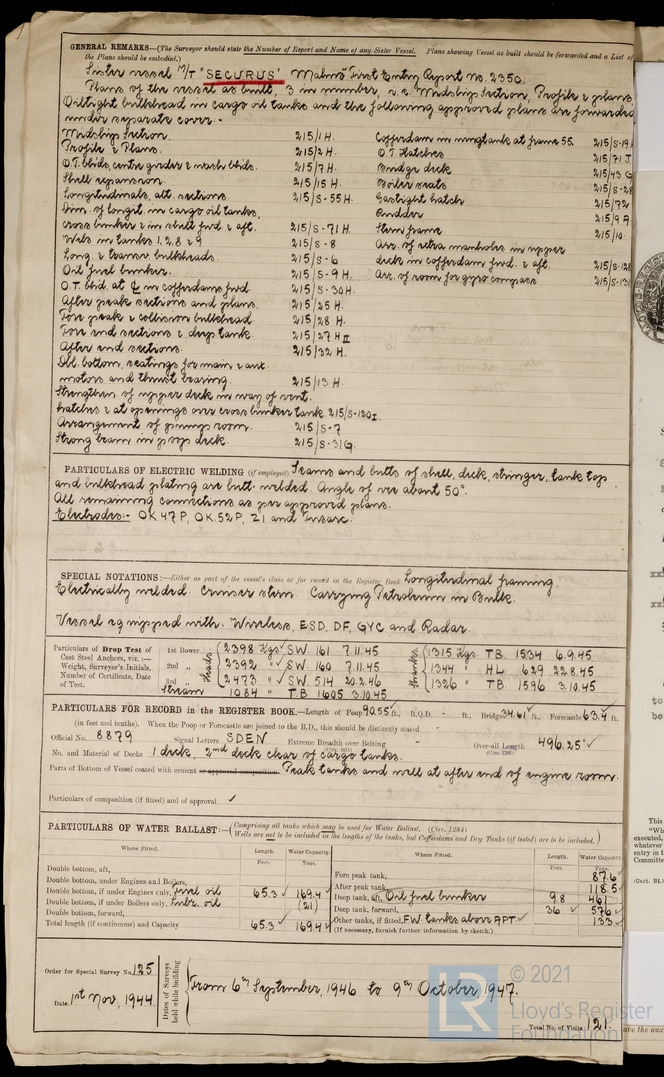 GENERAL REMARKS—(The Surveyor should state the Number of Report and Name of any Sister Vessel. Plans showing Vessel as built should be forwarded and a List of
the Plans should be embodied.)
Sister vessel M/T "SECURUS" Malmö First Entry Report no. 2350.
Plans of the vessel as built, 3 in number, v.z. Midship Section, Profile & plans
Oiltight bulkhead in cargo oil tanks and the following approved plans are forwarded
under separate cover:-
Midship Section. 215/1H. Cofferdam in wingtank at frame 55. 215/S-19
Profile & Plans. 215/2H. O.T. Hatches 215/71 J
O.T. bhds, centre girder & wash bhds. 215/7H. Bridge deck 215/43 G
Shell expansion. 215/15H. Boiler seats 215/S-28
Longitudinals, alt. sections. 215/S-55H. Gastight hatch 215/72
Dim. of longit. in cargo oil tanks, Rudder 215/9A
cross bunker & in shell fwd & aft. 215/S-71H. Stern frame 215/10
Webs in tanks 1, 2, 8 & 9 215/S-8 Arr. of extra manholes in upper
Long. & transv. bulkheads. 215/S-6 deck in cofferdam fwd. & aft. 215/S-128
Oil fuel bunker. 215/S-9H. Arr. of room for gyro compass 215/S-131
O.T. bhd. at ℄ in cofferdams fwd. 215/S-30H.
After peak sections and plans. 215/25H.
Fore peak & collision bulkhead. 215/28H.
Fore end sections & deep tank. 215/27H II
After end sections. 215/32H.
Dbl. bottom, seatings for main & aux.
motors and thrust bearing. 215/13H.
Strengthen. of upper deck in way of vent.
hatches & at openings over cross bunker tank. 215/S-120I.
Arrangement of pumps room. 215/S-7
Strong beam in poop deck. 215/S-31G.
PARTICULARS OF ELECTRIC WELDING (if employed) Seams and butts of shell, deck, stringer, tank top
and bulkhead plating are butt welded. Angle of vee about 50°.
All remaining connections as per approved plans.
Electrodes:- OK 47P, OK 52P, 21 and Fusarc.
SPECIAL NOTATIONS:—Either as part of the vessel's class or for record in the Register Book. Longitudinal framing.
Electrically welded. Cruiser stern. Carrying Petroleum in Bulk.
Vessel equipped with: Wireless, ESD, DF, GYC and Radar.
Particulars of Drop Test of 1st Bower. heads: 2398 Kgs SW. 161 7.11.45 shanks: 1315 Kgs. TB. 1534 6.9.45
Cast Steel Anchors, viz.:— 2nd „ 2392 „ SW. 160 7.11.45 1344 „ HL 629 22.8.45
Weight, Surveyor's Initials, 3rd „ 2473 „ SW. 514 20.2.46 1326 „ TB. 1596 3.10.45
Number of Certificate, Date of Test. Stream 1084 „ TB 1605 3.10.45
PARTICULARS FOR RECORD in the REGISTER BOOK.—Length of Poop 90.55 ft., R.Q.D. - ft., Bridge 34.61 ft., Forecastle 63.4 ft.
(in feet and tenths). When the Poop or Forecastle are joined to the B.D., this should be distinctly stated
Official No. 8879 Signal Letters SDEN Extreme Breadth over Belting - Over-all Length 496.25'
No. and Material of Decks 1 deck, 2nd deck clear of cargo tanks.
Parts of Bottom of Vessel coated with cement or approved composition Peak tanks and well at after end of engine room.
Particulars of composition (if fitted) and of approval
PARTICULARS OF WATER BALLAST:— (Comprising all tanks which may be used for Water Ballast. (Circ. 1284)
Wells are not to be included in the lengths of the tanks, but Cofferdams and Dry Tanks (if tested) are to be included.)
Where Fitted. Length. Feet. Water Capacity. Tons. Where Fitted. Length. Feet. Water Capacity. Tons.
Double bottom, aft, Fore peak tank, 87.6
Double bottom, under Engines and Boilers, After peak tank, 118.5
Double bottom, if under Engines only, fuel oil 65.3 169.4 Deep tank, aft, Oil fuel bunker 9.8 461
Double bottom, if under Boilers only, lubr. oil (21) Deep tank, forward, 36 576
Double bottom, forward, Other tanks, if fitted, FW tanks above APT 133
Total length (if continuous) and Capacity 65.3 169.4 (If necessary, furnish further information by sketch.)
Order for Special Survey No. 125
Date 1st Nov, 1944
Dates of Surveys held while building
From 6th September, 1946 to 9th October, 1947.
Total No. of Visits 121.
© 2021
Lloyd's Register
Foundation
LR